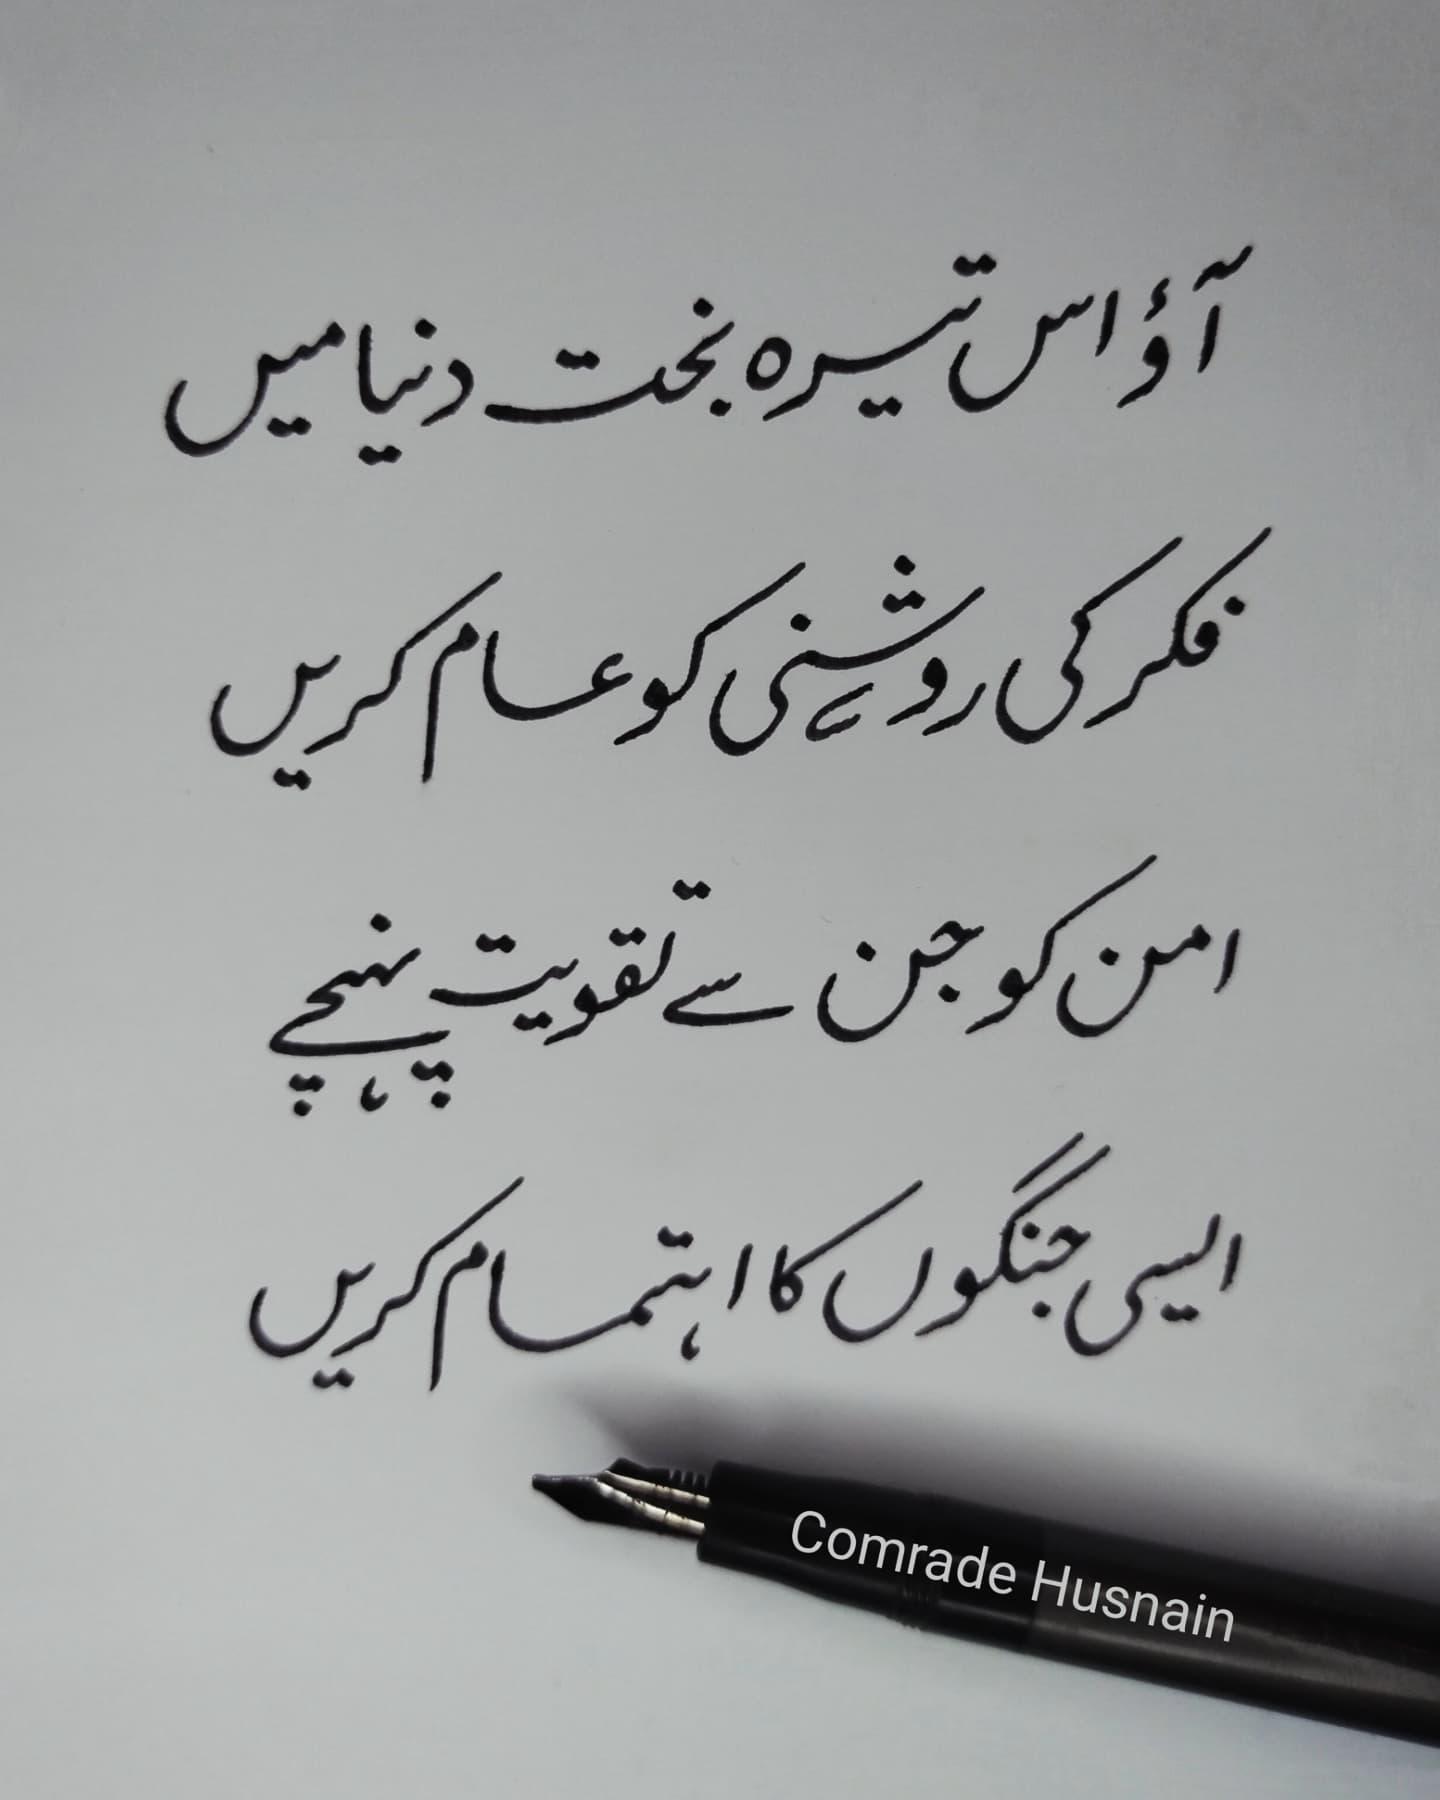 آؤ اس تیرہ بخت دنیا میں
فکر کی روشنی کو عام کریں
امن کو جن سے تقویت پہنچے
ایسی جنگوں کا اہتمام کریں
Comrade Husnain